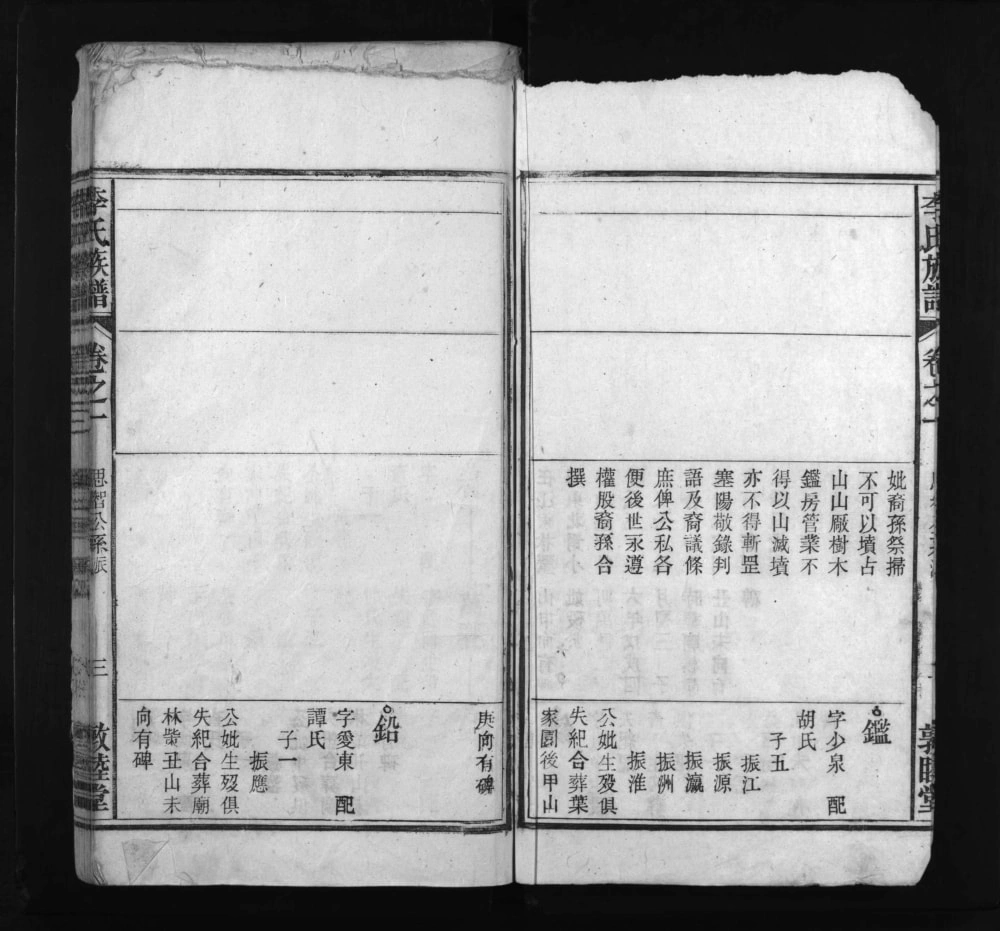 李氏族譜
卷之一
敦睦堂
妣裔孫祭掃
不可以墳占
山山厰樹木
鑑房管業不
得以山滅墳
亦不得斬罡
塞陽敬錄判
語及裔議條
庶俾公私各
便後世永遵
權殷裔孫合
撰
鑑
字少泉 配
胡氏
子五
振江
振源
振瀛
振洲
振淮
公妣生歿俱
失紀合葬葉
家園後甲山
庚向有碑
鉛
字愛東 配
譚氏
子一
振應
公妣生歿俱
失紀合葬廟
林背丑山未
向有碑
李氏族譜
卷之一
思智公孫派
三
敦睦堂